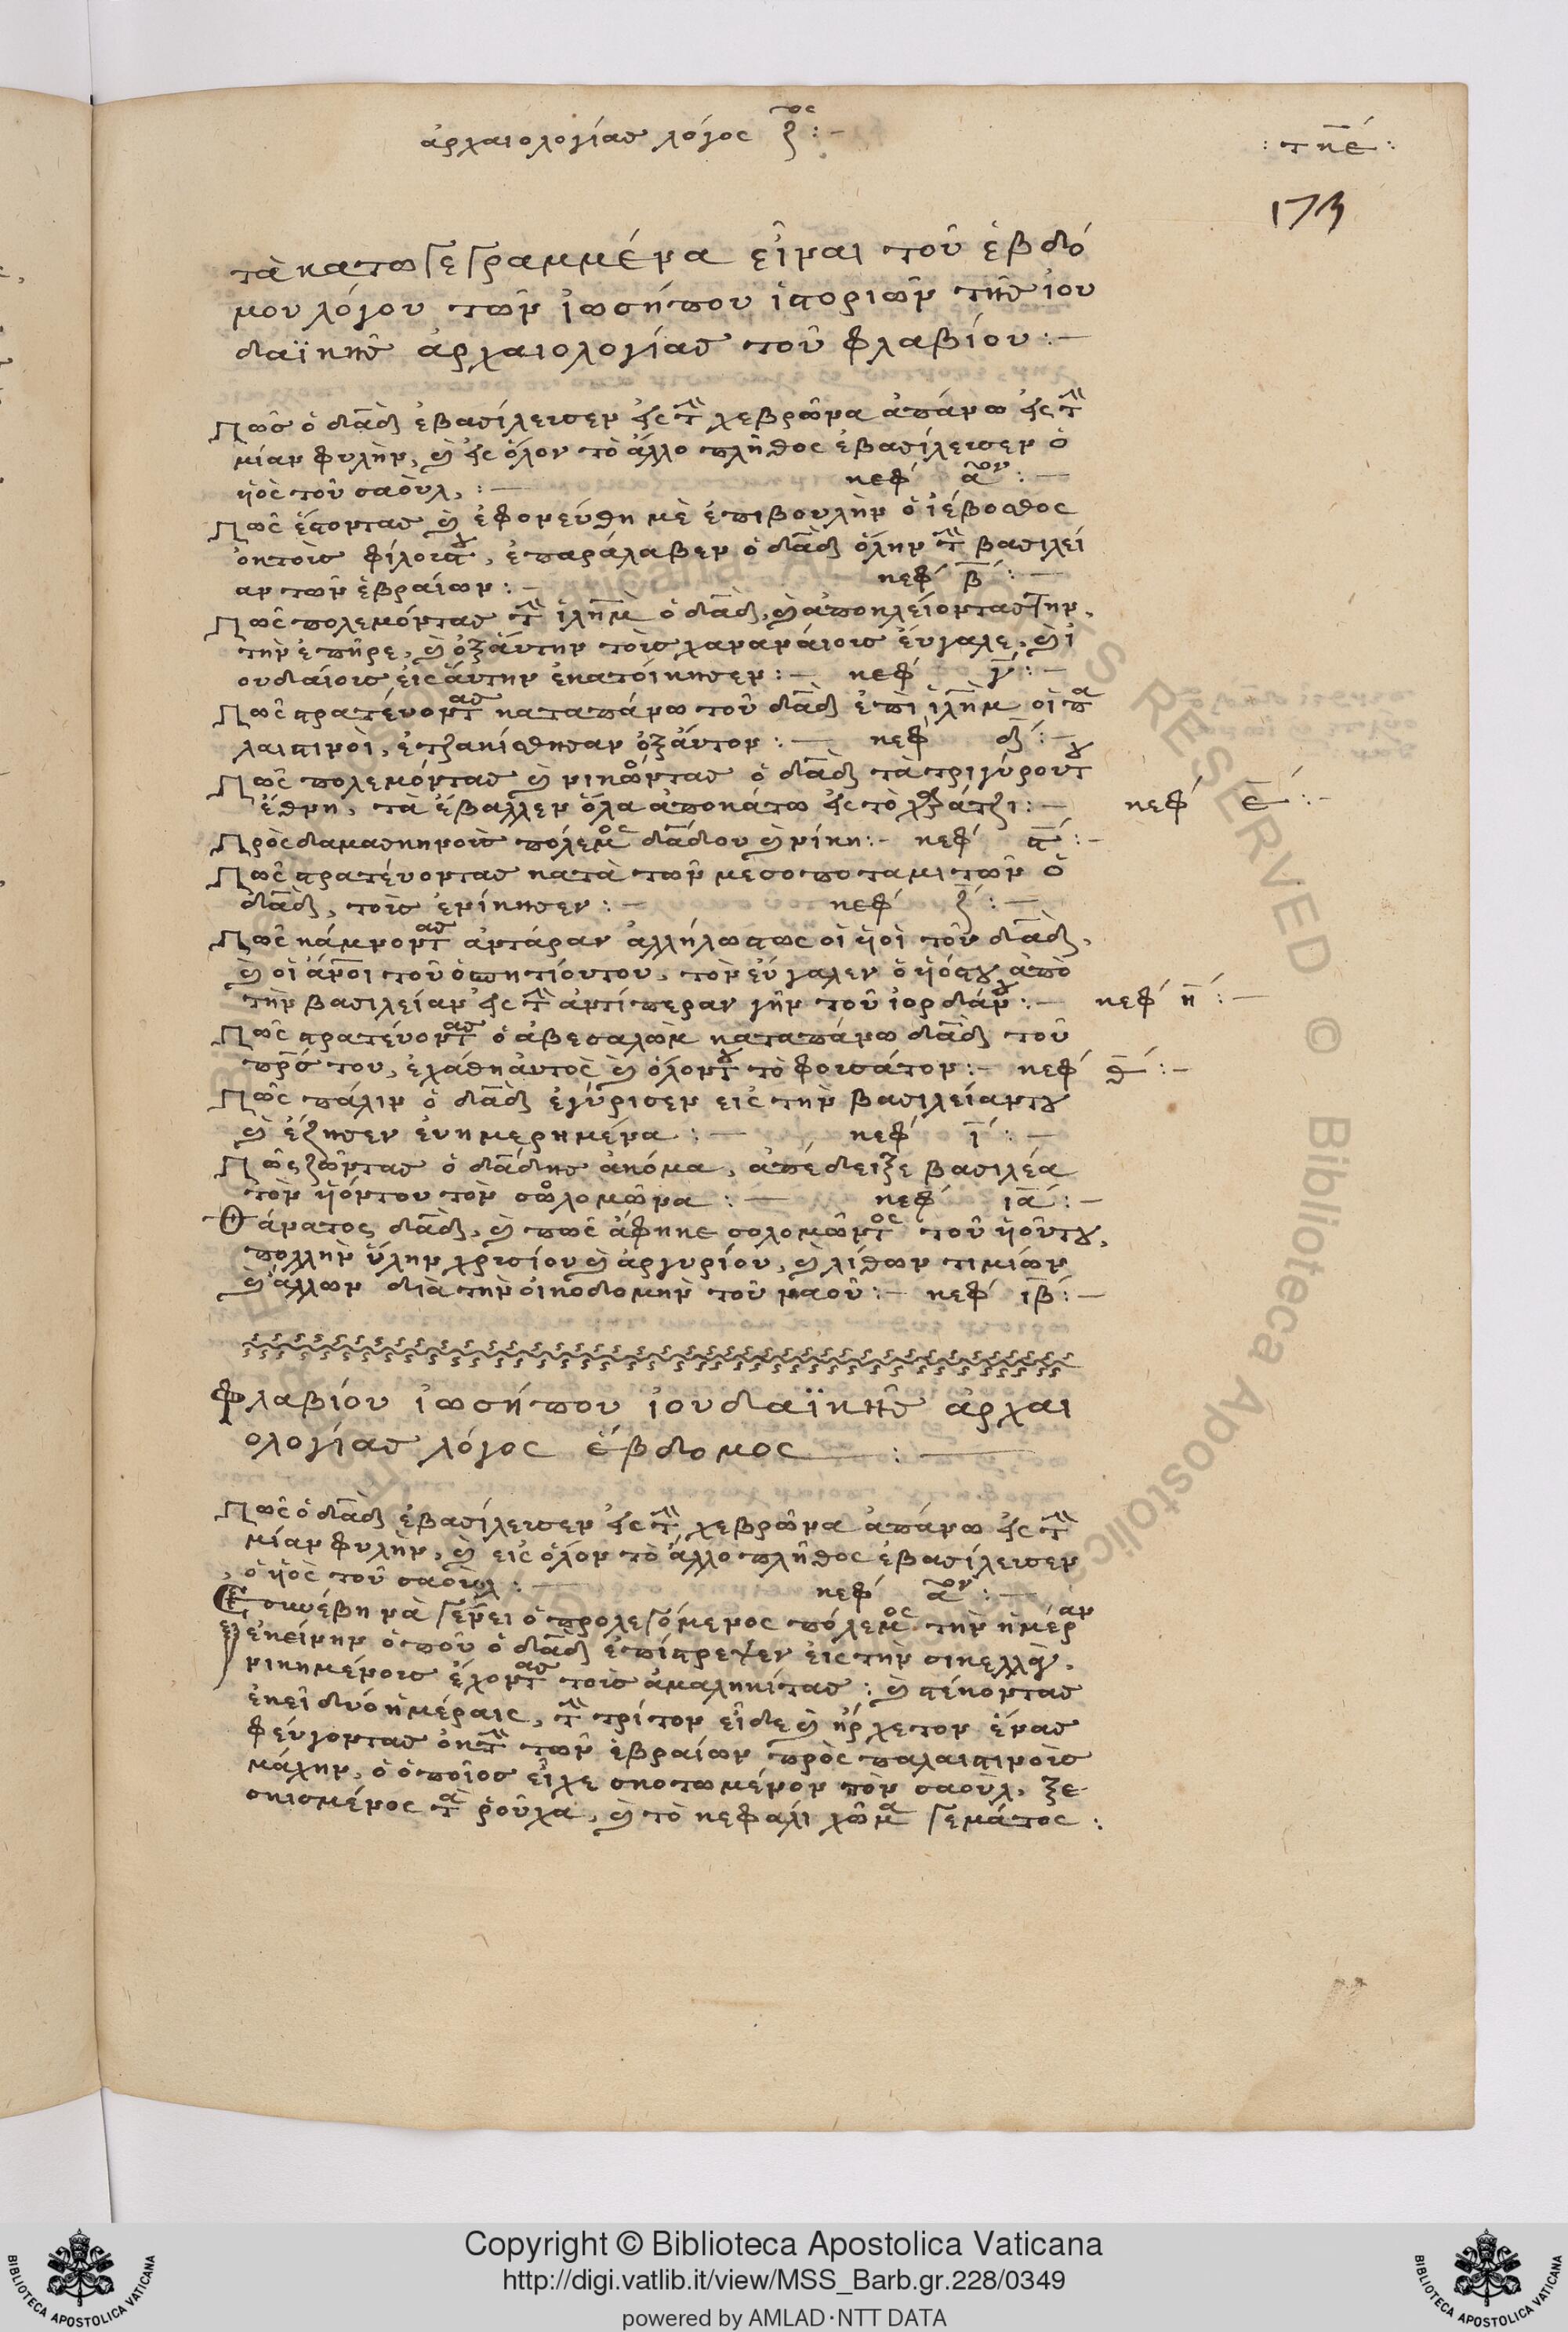 ἀρχαιολογίας λόγος ζ^ος :-
: τκε :
173
τὰ κατωγεγραμμένα εἶναι τοῦ ἑβδό
μου λόγου τῶν ἰωσήπου ἱστοριῶν τῆς ἰου
δαϊκῆς ἀρχαιολογίας τοῦ φλαβίου :-
Πῶς ὁ δᾱδ ἐβασίλευσεν εἰς τὴν χεβρῶνα ἀπάνω εἰς τὴν
μίαν φυλὴν, καὶ εἰς ὅλον τὸ ἄλλο πλῆθος ἐβασίλευσεν ὁ
ϋἱὸς τοῦ σαοὺλ, :- κεφ ᾱον :-
Πῶς ἔστοντας καὶ ἐφονεύθη μὲ ἐπιβουλὴν ὁ ἰέβοσθος
ὀκτοὺς φίλους του, ἐπαράλαβεν ὁ δᾱδ ὅλην τὴν βασιλεί
αν τῶν ἑβραίων :- κεφ β̄ :-
Πῶς πολεμόντας τὴν ἱλημ ὁ δᾱδ, καὶ ἀποκλείοντας την,
τὴν ἐπῆρε, καὶ ὀξάυτην τοὺς χαναναίους ἔυγαλε, καὶ ἰ
ουδαίους εἰς ἄυτην ἐκατοίκησεν :- κεφ γ̄ :-
Πῶς στρατέυοντας καταπάνω τοῦ δᾱδ ἐπὶ ἱλημ οἱ πα
λαιστινοὶ, ἐτζακίσθησαν ὀξάυτον :- κεφ δ̄ :-
Πῶς πολεμόντας καὶ νικώντας ὁ δᾱδ τὰ τριγύρου του
ἔθνη, τὰ ἔβαλλεν ὅλα ἀποκάτω εἰς τὸ χαράτζι :- κεφ ε̄ :-
Πρὸς δαμασκηνοὺς πόλεμος δᾱδου καὶ νίκη :- κεφ ϛ̄ :-
Πῶς στρατέυοντας κατὰ τῶν μεσοποταμιτῶν ὁ
δᾱδ, τοὺς ἐνίκησεν :- κεφ ζ̄ :-
Πῶς κάμνοντας ἀντάραν ἀλλήλωστως οἱ ϋἱοὶ τοῦ δᾱδ,
καὶ οἱ ἄνοι τοῦ ὁσπητίουτου, τὸν ἐύγαλεν ὁ ϋἱόςτου ἀπὸ
τὴν βασιλείαν εἰς τὴν ἀντίπεραν γῆν τοῦ ἰορδάνου :- κεφ η̄ :-
Πῶς στρατέυοντας ὁ ἀβεσαλὼμ καταπάνω δᾱδ τοῦ
πρς του, ἐχάθη ἀυτὸς καὶ ὅλοντου τὸ φουσάτον :- κεφ θ̄ :-
Πῶς πάλιν ὁ δᾱδ ἐγύρισεν εἰς τὴν βασιλείαντου
καὶ ἔζησεν ἐυημερημένα :- κεφ ῑ :-
Πῶς ζῶντας ὁ δᾱδης ἀκόμα, ἀπέδειξε βασιλέα
τὸν ϋἱόντου τὸν σολομῶνα :- κεφ ιᾱ :-
Θάνατος δᾱδ, καὶ πῶς ἄφηκε σολομῶντος τοῦ ϋἱοῦντου,
πολλὴν ὕλην χρυσίου καὶ ἀργυρίου, καὶ λίθων τιμίων
καὶ ἄλλων διὰ τὴν οἰκοδομὴν τοῦ ναοῦ :- κεφ ιβ̄ :-
Φλαβίου ἰωσήπου ἰουδαϊκῆς ἀρχαι
ολογίας λόγος ἕβδομος :-
Πῶς ὁ δᾱδ ἐβασίλευσεν εἰς τὴν χεβρῶνα ἀπάνω εἰς τὴν
μίαν φυλὴν, καὶ εἰς ὅλον τὸ ἄλλο πλῆθος ἐβασίλευσεν
ὁ ϋἱὸς τοῦ σαοὺλ :- κεφ ᾱον :-
Ἐσυνέβη νὰ γένει ὁ προλεγόμενος πόλεμος τὴν ἡμέραν
ἐκείνην ὁποῦ ὁ δᾱδ ἐπίστρεψεν εἰς τὴν σικελλὰν,
νικημένους ἔχοντας τοὺς ἀμαληκίτας : καὶ στέκοντας
ἐκεῖ δυὸ ἡμέραις, τὴν τρίτον εἶδε καὶ ἤρχετον ἕνας
φέυγοντας ὀκτὴν τῶν ἑβραίων πρὸς παλαιστινοὺς
μάχην, ὁ ὁποῖος εἶχε σκοτωμένον τὸν σαοὺλ, ξε
σκισμένος τὰ ῥοῦχα, καὶ τὸ κεφάλι χῶμα γεμάτος :
Copyright © Biblioteca Apostolica Vaticana
http://digi.vatlib.it/view/MSS_Barb.gr.228/0349
powered by AMLAD·NTT DATA